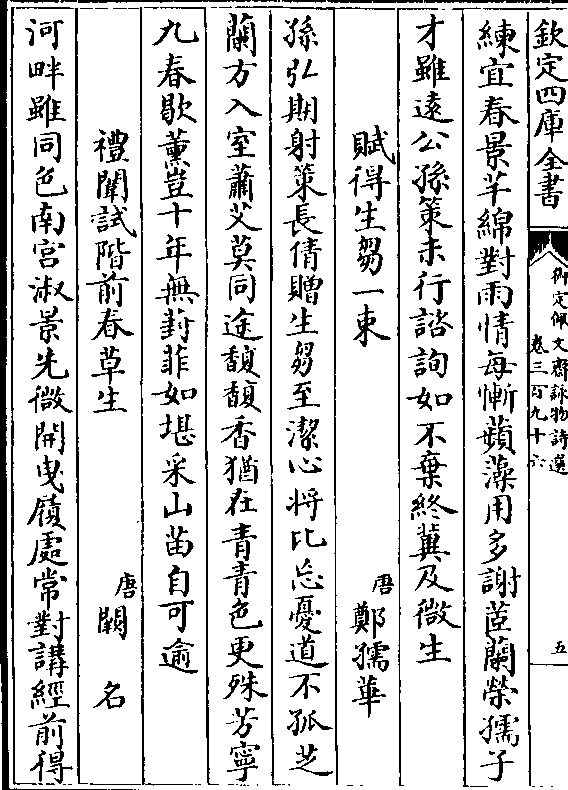 欽定四庫全書
御定佩文齋詠物詩選
卷三百九十六
五
練宜春景芊綿對雨情每慚蘋藻用多謝茝蘭榮孺子
才雖遠公孫策未行諮詢如不棄終冀及微生
賦得生芻一束
唐鄭孺華
孫弘期射策長倩贈生芻至潔心將比忘憂道不孤芝
蘭方入室蕭艾莫同途馥馥香猶在青青色更殊芳寧
九春歇薰豈十年無葑菲如堪采山苗自可逾
禮闈試階前春草生
唐闕名
河畔雖同色南宮淑景先微開曳履處常對講經前得